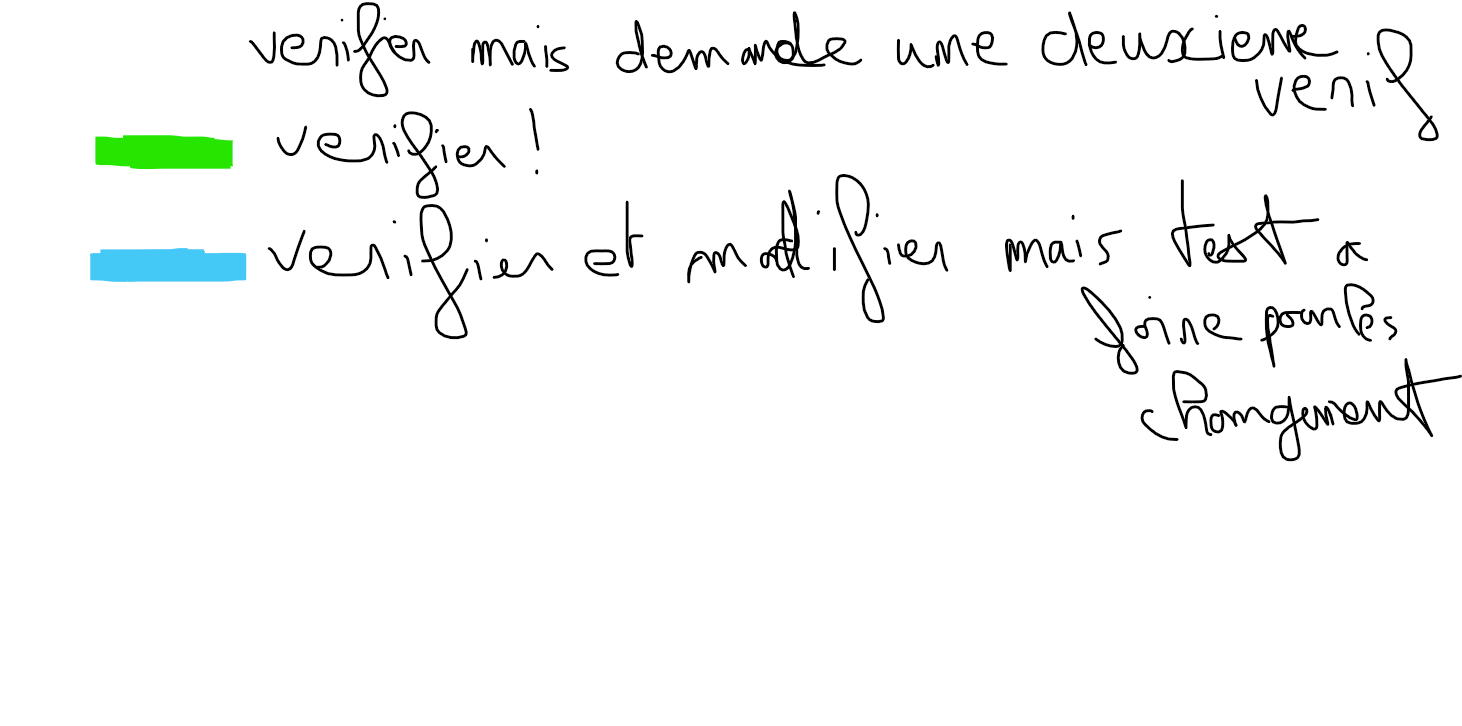 verifier mais demande une deuxieme
verif
verifier !
verifier et modifier mais test a
faire pour les
changement